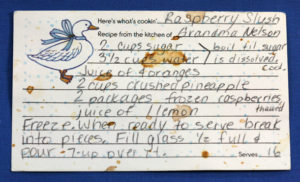 Here's what's cookin' Raspberry Slush
Recipe from the kitchen of Grandma Nelson
2 cups sugar boil til sugar
3 1/2 cups water is dissolved.
Cool.
Juice of 4 oranges
2 cups crushed pineapple
2 packages frozen raspberries
juice of 1 lemon thawed
Freeze. When ready to serve break
into pieces. Fill glass 1/2 full &
pour 7-up over it. Serves 16